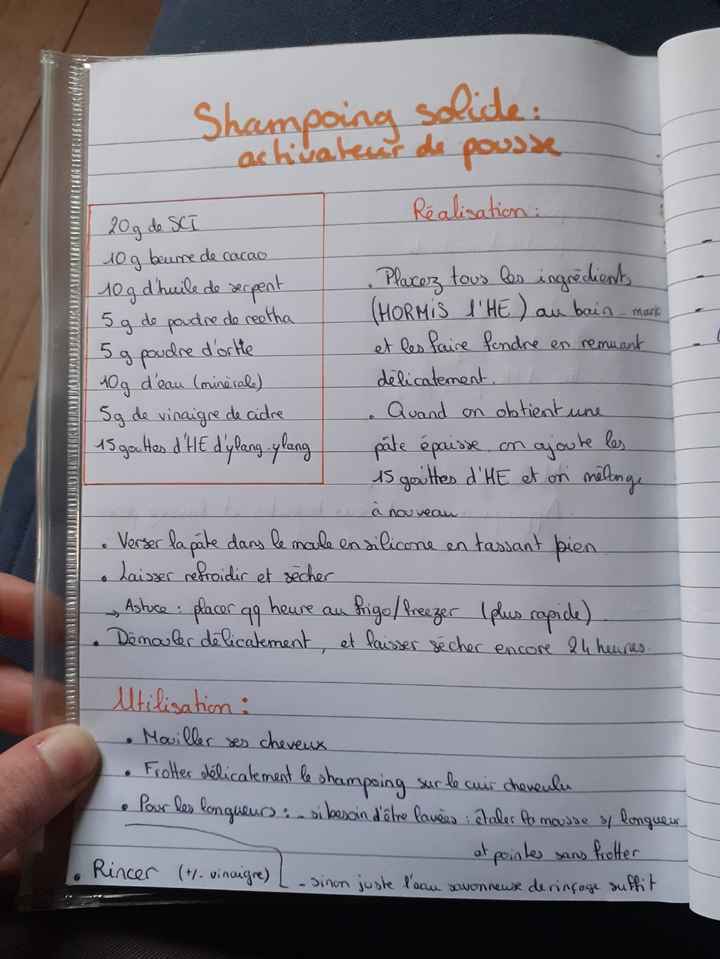 Shampoing solide :
activateur de pousse
20g de SCI
10g beurre de cacao
10g d'huile de serpent
5g de poudre de reetha
5g poudre d'ortie
10g d'eau (minérale)
5g de vinaigre de cidre
15 gouttes d'HE d'ylang-ylang
Réalisation :
. Placez tous les ingrédients
(HORMIS l'HE) au bain-marie
et les faire fondre en remuant
délicatement.
. Quand on obtient une
pâte épaisse, on ajoute les
15 gouttes d'HE et on mélange
à nouveau
• Verser la pâte dans le moule en silicone en tassant bien
• Laisser refroidir et sécher
→ Astuce : placer qq heure au frigo/freezer (plus rapide).
• Démouler délicatement, et laisser sécher encore 24 heures.
Utilisation :
• Mouiller ses cheveux
• Frotter délicatement le shampoing sur le cuir chevelu
• Pour les longueurs : - si besoin d'être lavées : étaler la mousse s/ longueur
et pointes sans frotter
- sinon juste l'eau savonneuse de rinçage suffit
• Rincer (+/- vinaigre)